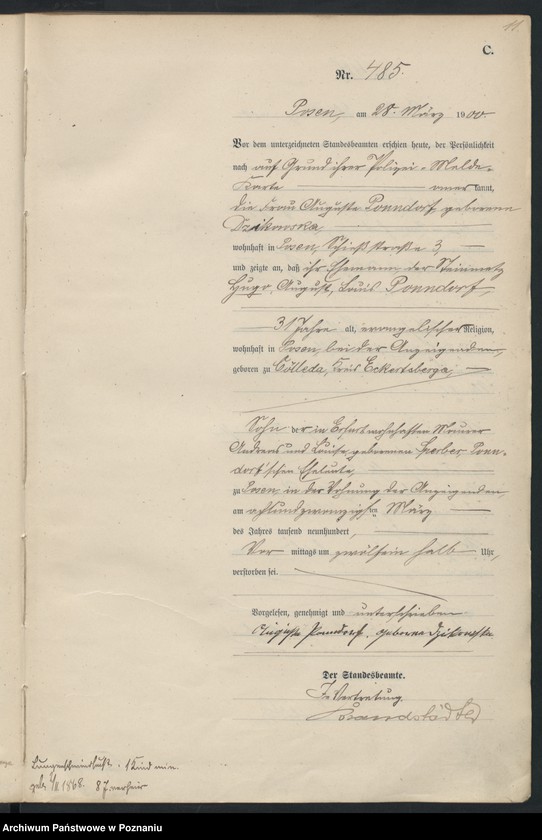 11
C.
Nr. 485.
Posen, am 28. März 1900
Vor dem unterzeichneten Standesbeamten erschien heute, der Persönlichkeit
nach auf Grund ihrer Polizei-Melde-
Karte anerkannt,
die Frau Auguste Ponndorf geborene
Dzikowska,
wohnhaft in Posen, Schießstraße 3
und zeigte an, daß ihr Ehemann, der Steinmetz
Hugo, August, Louis Ponndorf,
31 Jahre alt, evangelischer Religion,
wohnhaft in Posen, bei der Anzeigenden,
geboren zu Cölleda, Kreis Eckartsberga,
Sohn der in Erfurt wohnhaften Maurer
Andreas und Louise, geborenen Ponn-
dorf'schen Eheleute,
zu Posen, in der Wohnung der Anzeigenden,
am achtundzwanzigsten März
des Jahres tausend neunhundert,
Vor mittags um zwölfein halb Uhr,
verstorben sei.
Vorgelesen, genehmigt und unterschrieben
Auguste Ponndorf, geborene Dzikowska
Der Standesbeamte.
In Vertretung.
Lungenschwindsucht. 1 Kind min.
geb. 1868. 8 J. verheir
Archiwum Państwowe w Poznaniu